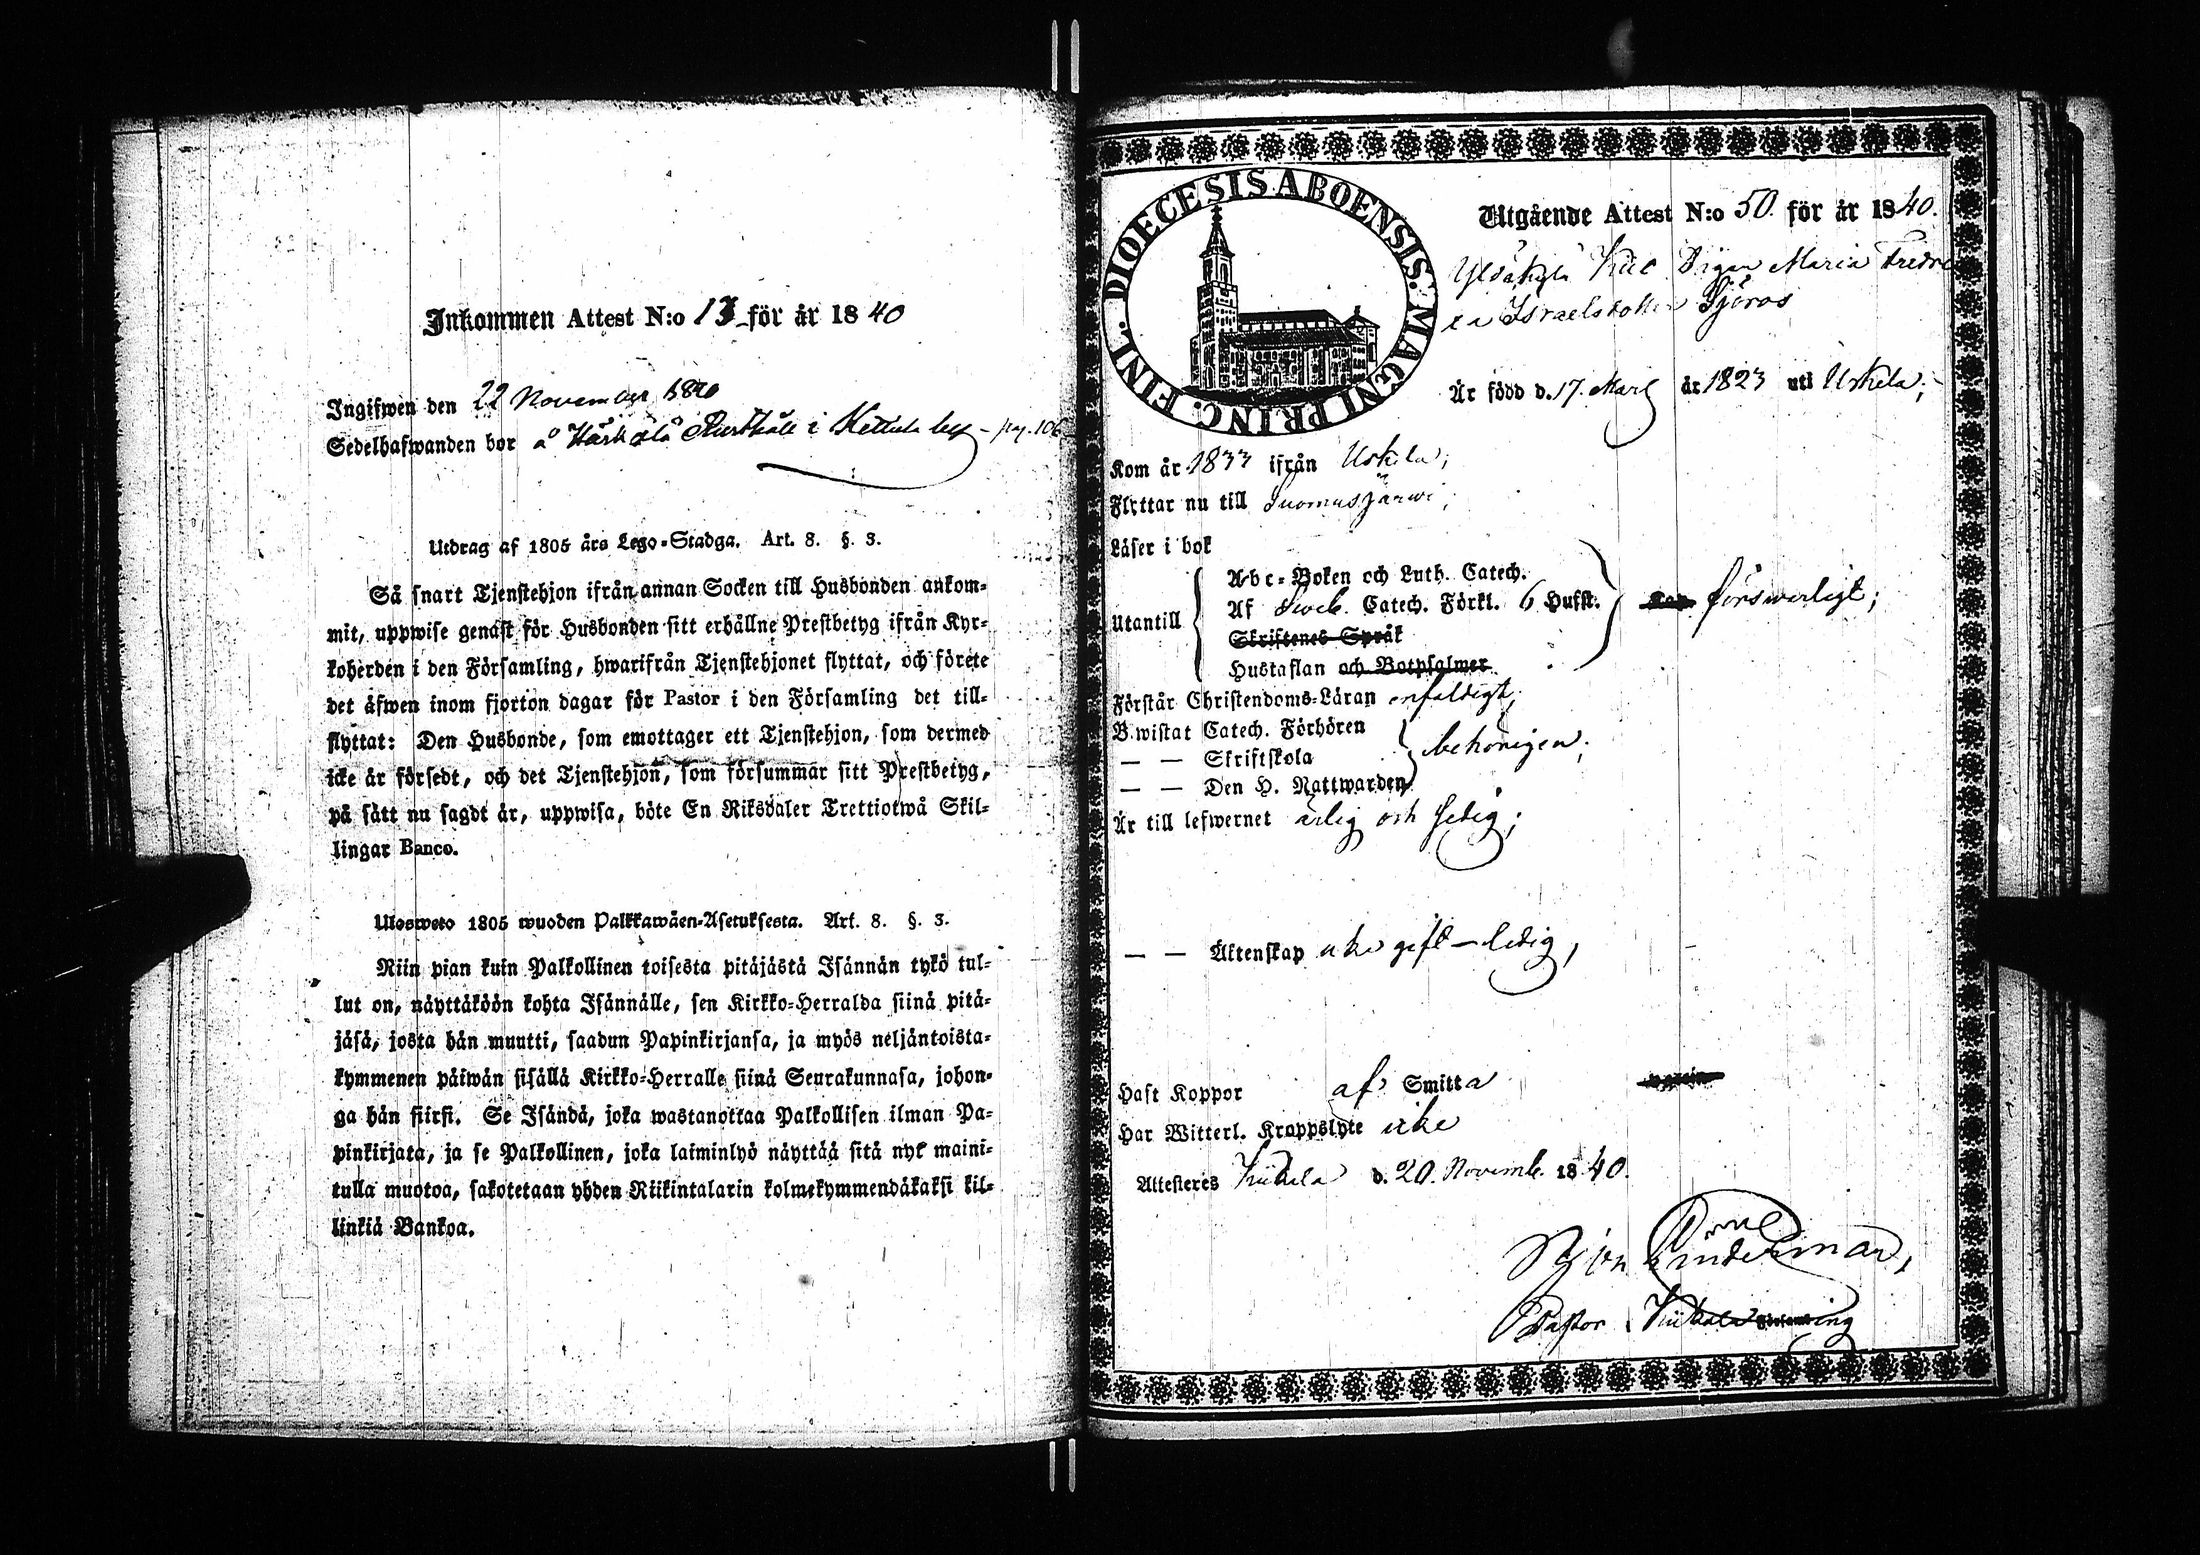 Inkommen Attest N:o 13 för år 1840
Ingifwen den 22 November 1840
Sedelhafwanden bor å Härkälä Rusthåll i Kettula by – pag. 106
Utdrag af 1805 års Lego-Stadga. Art. 8. §. 3.
Så snart Tjenstehjon ifrån annan Socken till Husbonden ankom-
mit, uppwise genast för Husbonden sitt erhållne Prestbetyg ifrån Kyr-
koherden i den Församling, hwarifrån Tjenstehjonet flyttat, och förete
det äfwen inom fjorton dagar för Pastor i den Församling det till-
flyttat: Den Husbonde, som emottager ett Tjenstehjon, som dermed
icke är försedt, och det Tjenstehjon, som försummar sitt Prestbetyg,
på sätt nu sagdt är, uppwisa, böte En Riksdaler Trettiotwå Skil-
lingar Banco.
Ulosweto 1805 wuoden Palkkawäen-Asetuksesta. Art. 8. §. 3.
Niin pian kuin Palkollinen toisesta pitäjästä Isännän tykö tul-
lut on, näyttäköön kohta Isännälle, sen Kirkko-Herralda siinä pitä-
jäsä, josta hän muutti, saadun Papinkirjansa, ja myös neljäntoista-
kymmenen päiwän sisällä Kirkko-Herralle siinä Seurakunnasa, johon-
ga hän siirsi. Se Isändä, joka wastanottaa Palkollisen ilman Pa-
pinkirjata, ja se Palkollinen, joka laiminlyö näyttää sitä nyt maini-
tulla muotoa, sakotetaan yhden Riikintalarin kolmekymmendäkaksi kil-
linkiä Bankoa.
DIOECESIS ABOENSIS. MAGNI PRINC. FINL.
Utgående Attest N:o 50. för år 1840.
Pigan Maria Fredri
ca Israelsdotter Sjöros
Är född d. 17. Mars år 1823 uti Uskela;
Kom år 1833 ifrån Uskela;
Flyttar nu till Suomusjärwi;
Läser i bok
Utantill
Abc-Boken och Luth. Catech.
Af Sweb. Catech. Förkl. 6 Hufst.
Skriftenes Språk
Hustaflan och Botpsalmer
förswarligt;
Förstår Christendoms-Läran enfaldigt;
Bewistat Catech. Förhören
— — Skriftskola
— — Den H. Nattwarden
behörigen;
Är till lefwernet ärlig och sedig;
— — Äktenskap icke gift – ledig,
Haft Koppor af Smitta
Har Witterl. Kroppslyte icke
Attesteras Kiikala d. 20. Novemb. 1840.
Linderman,
Pastor i Kiikala